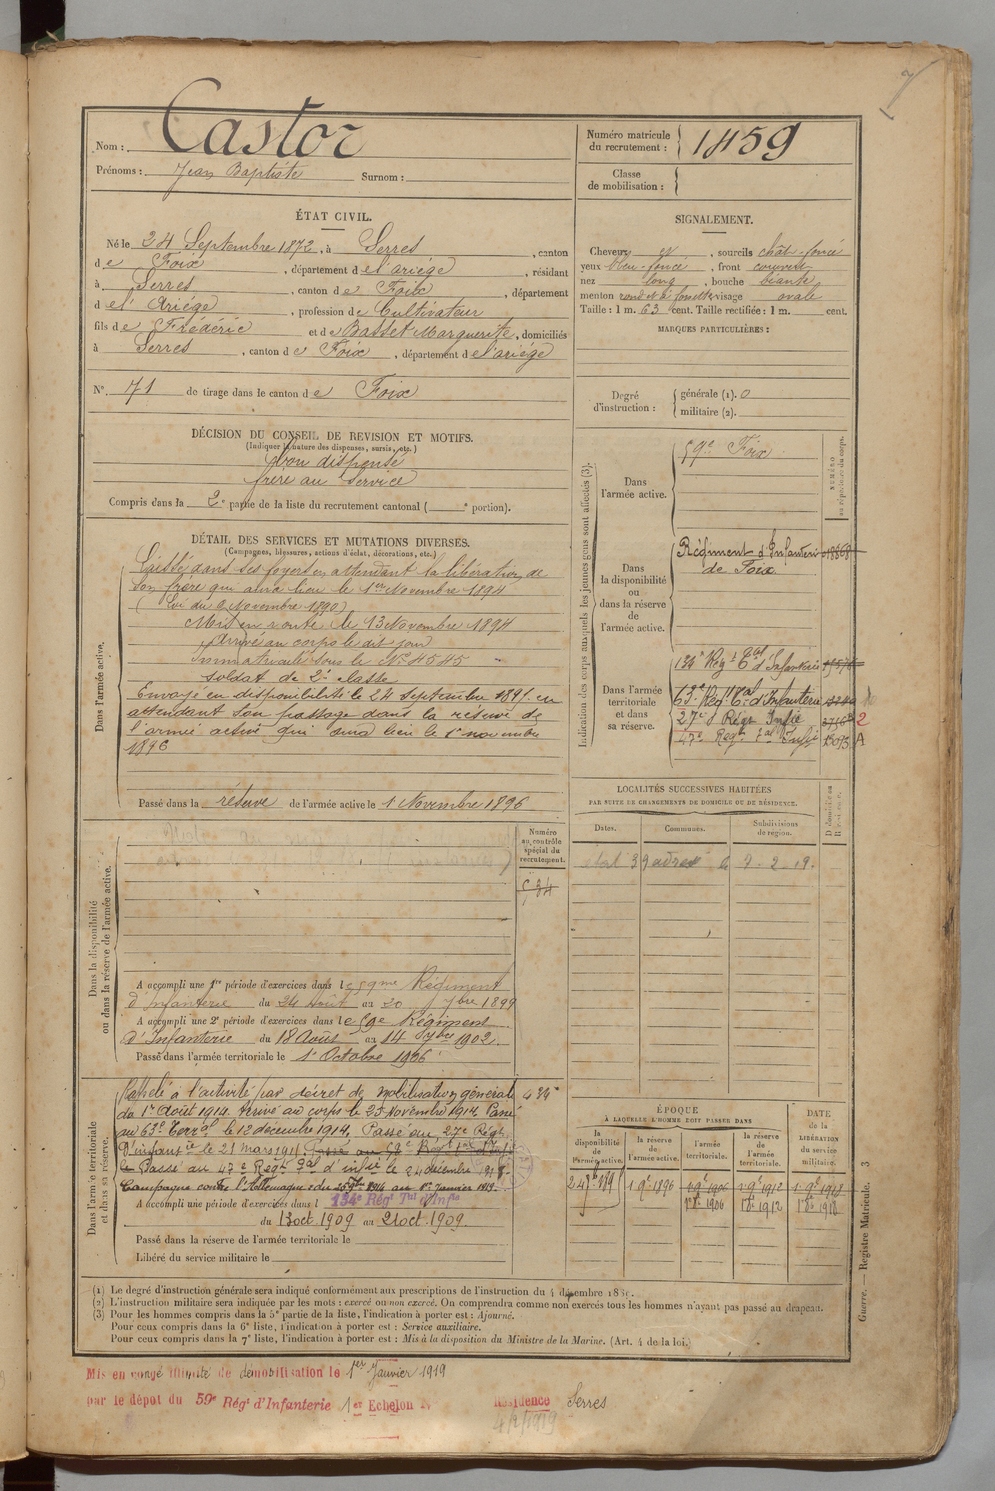 7
Nom : Castor
Prénoms : Jean Baptiste Surnom :
Numéro matricule du recrutement : 1459
Classe de mobilisation :
ÉTAT CIVIL.
Né le 24 Septembre 1872, à Serres, canton
de Foix, département de l'ariége, résidant
à Serres, canton de Foix, département
de l'Ariége, profession de Cultivateur
fils de Frédéric et de Basset Marguerite, domiciliés
à Serres, canton de Foix, département de l'ariége
N° 71 de tirage dans le canton de Foix
SIGNALEMENT.
Cheveux et, sourcils chât-foncé
yeux bleu-foncé, front couvert
nez long, bouche béante
menton rond et à fossette visage ovale
Taille : 1 m. 63 cent. Taille rectifiée : 1 m. cent.
MARQUES PARTICULIÈRES :
Degré d'instruction :
générale (1). 0
militaire (2).
DÉCISION DU CONSEIL DE REVISION ET MOTIFS.
(Indiquer la nature des dispenses, sursis, etc.)
bon dispensé
frère au service
Compris dans la 2e partie de la liste du recrutement cantonal ( e portion).
DÉTAIL DES SERVICES ET MUTATIONS DIVERSES.
(Campagnes, blessures, actions d'éclat, décorations, etc.)
Dans l'armée active.
Laissé dans ses foyers en attendant la libération de
son frère qui aura lieu le 1er Novembre 1894
(Loi du 2 Novembre 1890)
Mis en route le 13 Novembre 1894
Arrivé au corps le dit jour
Immatriculé sous le N° 4545
soldat de 2e classe
Envoyé en disponibilité le 24 septembre 1895 en
attendant son passage dans la réserve de
l'armée active qui aura lieu le 1er novembre
1896
Passé dans la réserve de l'armée active le 1 Novembre 1896
Indication des corps auxquels les jeunes gens sont affectés (3).
NUMÉRO au répertoire du corps.
Dans l'armée active.
59e Foix
Dans la disponibilité ou dans la réserve de l'armée active.
Régiment d'Infanterie
de Foix
Dans l'armée territoriale et dans sa réserve.
134e Régt Tal d'Infanterie
63e Régt Tal d'Infanterie
27e Régt Infie 2
47e Régt Tal Infie A
LOCALITÉS SUCCESSIVES HABITÉES
PAR SUITE DE CHANGEMENTS DE DOMICILE OU DE RÉSIDENCE.
Dates. Communes. Subdivisions de région.
Dans la disponibilité ou dans la réserve de l'armée active.
Numéro au contrôle spécial du recrutement.
534
A accompli une 1re période d'exercices dans le 59me Régiment
d'Infanterie du 24 Août au 20 7bre 1899
A accompli une 2e période d'exercices dans le 59e Régiment
d'Infanterie du 18 Août au 14 7bre 1902.
Passé dans l'armée territoriale le 1er Octobre 1906
Dans l'armée territoriale et dans sa réserve.
Rappelé à l'activité par décret de mobilisation générale
du 1er Août 1914. Arrivé au corps le 25 Novembre 1914. Passé
au 63e Terral le 12 décembre 1914, Passé au 27e Régt
D'infantie le 21 mars 1917
Passé au 47e Régt Tal d'infie le 24 décembre 1918.
A accompli une période d'exercices dans l 134e Régt Tal d'Infie
du 13 oct. 1909 au 21 oct. 1909.
Passé dans la réserve de l'armée territoriale le
Libéré du service militaire le
ÉPOQUE
À LAQUELLE L'HOMME DOIT PASSER DANS
la disponibilité de l'armée active. la réserve de l'armée active. l'armée territoriale. la réserve de l'armée territoriale.
DATE de la LIBÉRATION du service militaire.
1 9e 1896
1 8e 1906 1 8e 1912 1 8e 1918
Guerre. — Registre Matricule. 3
(1) Le degré d'instruction générale sera indiqué conformément aux prescriptions de l'instruction du 4 décembre 1889.
(2) L'instruction militaire sera indiquée par les mots : exercé ou non exercé. On comprendra comme non exercés tous les hommes n'ayant pas passé au drapeau.
(3) Pour les hommes compris dans la 5e partie de la liste, l'indication à porter est : Ajourné.
Pour ceux compris dans la 6e liste, l'indication à porter est : Service auxiliaire.
Pour ceux compris dans la 7e liste, l'indication à porter est : Mis à la disposition du Ministre de la Marine. (Art. 4 de la loi.)
Mis en congé illimité de démobilisation le 1er Janvier 1919
par le dépot du 59e Régt d'Infanterie 1er Echelon
Résidence Serres
4/2/1919